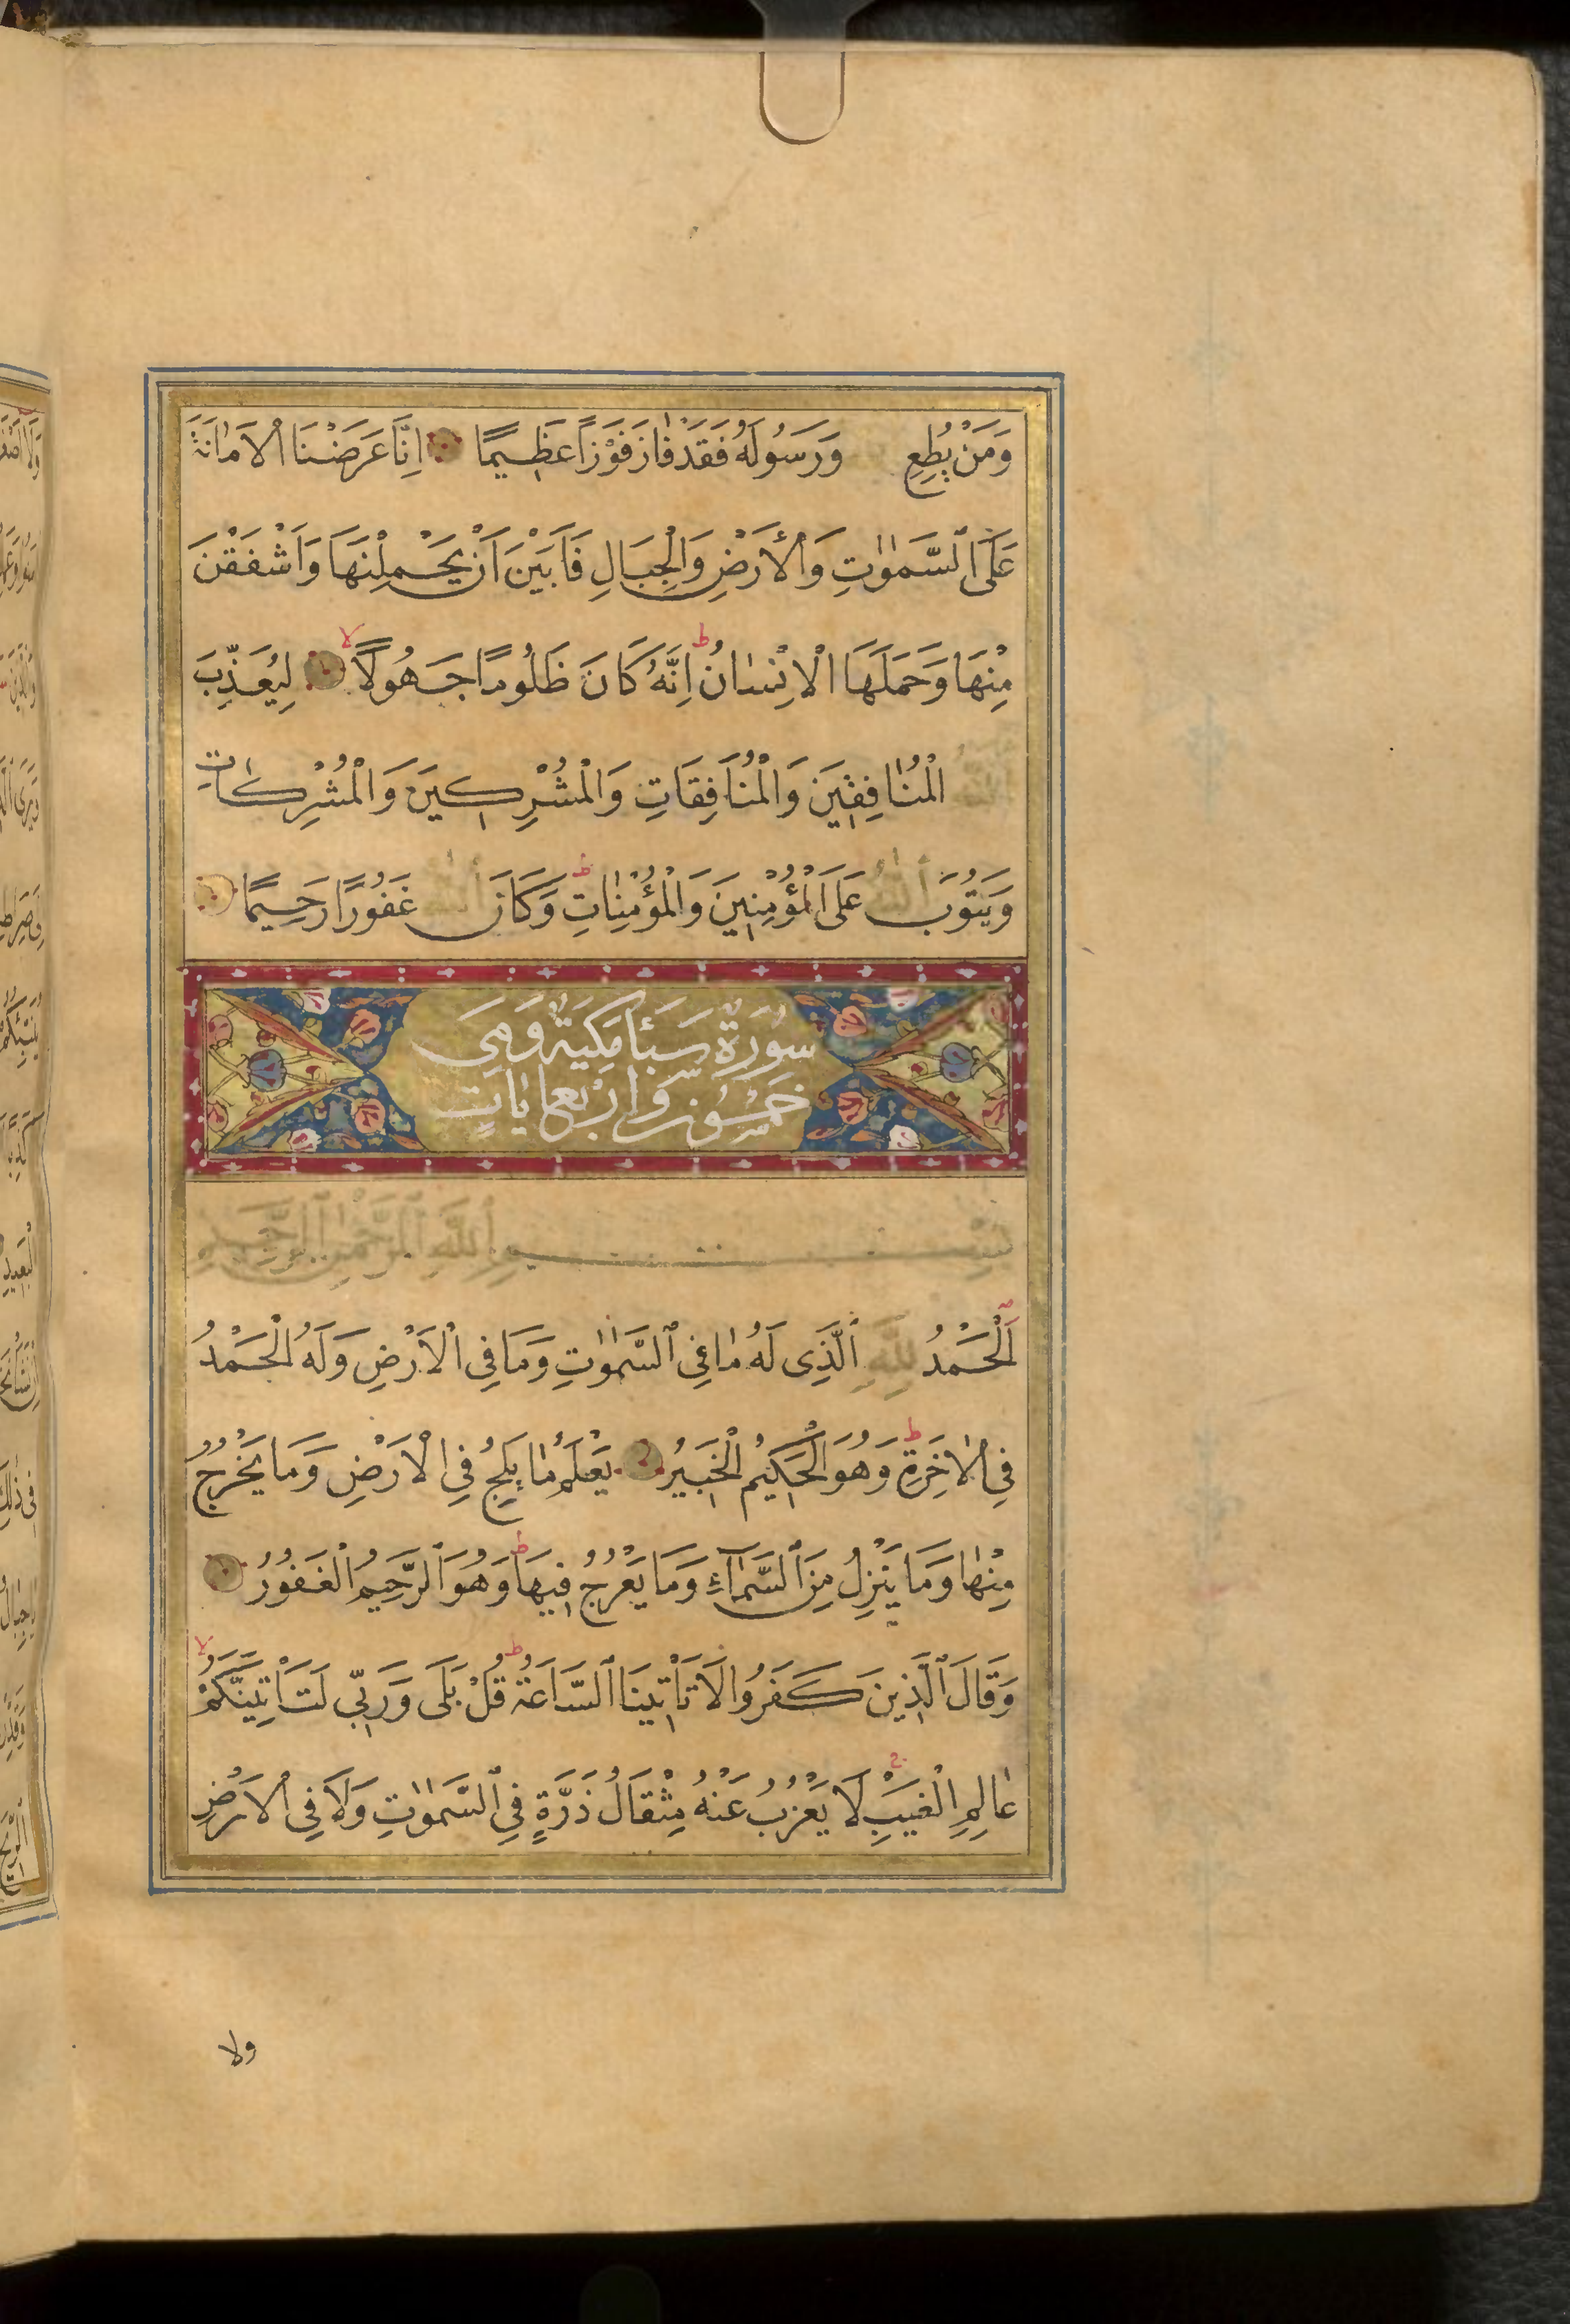 وَمَنْ يُطِعِ وَرَسُولَهُ فَقَدْ فَازَ فَوْزًا عَظِيمًا اِنَّا عَرَضْنَا الْاَمَانَةَ
عَلَى السَّمٰوٰتِ وَالْاَرْضِ وَالْجِبَالِ فَاَبَيْنَ اَنْ يَحْمِلْنَهَا وَاَشْفَقْنَ
مِنْهَا وَحَمَلَهَا الْاِنْسَانُ ط اِنَّهُ كَانَ ظَلُومًا جَهُولًا لا لِيُعَذِّبَ
اللّٰهُ الْمُنَافِقِينَ وَالْمُنَافِقَاتِ وَالْمُشْرِكِينَ وَالْمُشْرِكَاتِ
وَيَتُوبَ اللّٰهُ عَلَى الْمُؤْمِنِينَ وَالْمُؤْمِنَاتِ ط وَكَانَ اللّٰهُ غَفُورًا رَحِيمًا
سُورَةُ سَبَأ مَكِّيَّةٌ وَهِيَ
خَمْسُونَ وَاَرْبَعُ اٰيَاتٍ
بِسْمِ اللّٰهِ الرَّحْمٰنِ الرَّحِيمِ
اَلْحَمْدُ لِلّٰهِ الَّذِى لَهُ مَا فِى السَّمٰوٰتِ وَمَا فِى الْاَرْضِ وَلَهُ الْحَمْدُ
فِى الْاٰخِرَةِ ط وَهُوَ الْحَكِيمُ الْخَبِيرُ يَعْلَمُ مَا يَلِجُ فِى الْاَرْضِ وَمَا يَخْرُجُ
مِنْهَا وَمَا يَنْزِلُ مِنَ السَّمَآءِ وَمَا يَعْرُجُ فِيهَا ط وَهُوَ الرَّحِيمُ الْغَفُورُ
وَقَالَ الَّذِينَ كَفَرُوا لَا تَاْتِينَا السَّاعَةُ ط قُلْ بَلٰى وَرَبِّى لَتَاْتِيَنَّكُمْ لا
عَالِمِ الْغَيْبِ لَا يَعْزُبُ عَنْهُ مِثْقَالُ ذَرَّةٍ فِى السَّمٰوٰتِ وَلَا فِى الْاَرْضِ
ولا